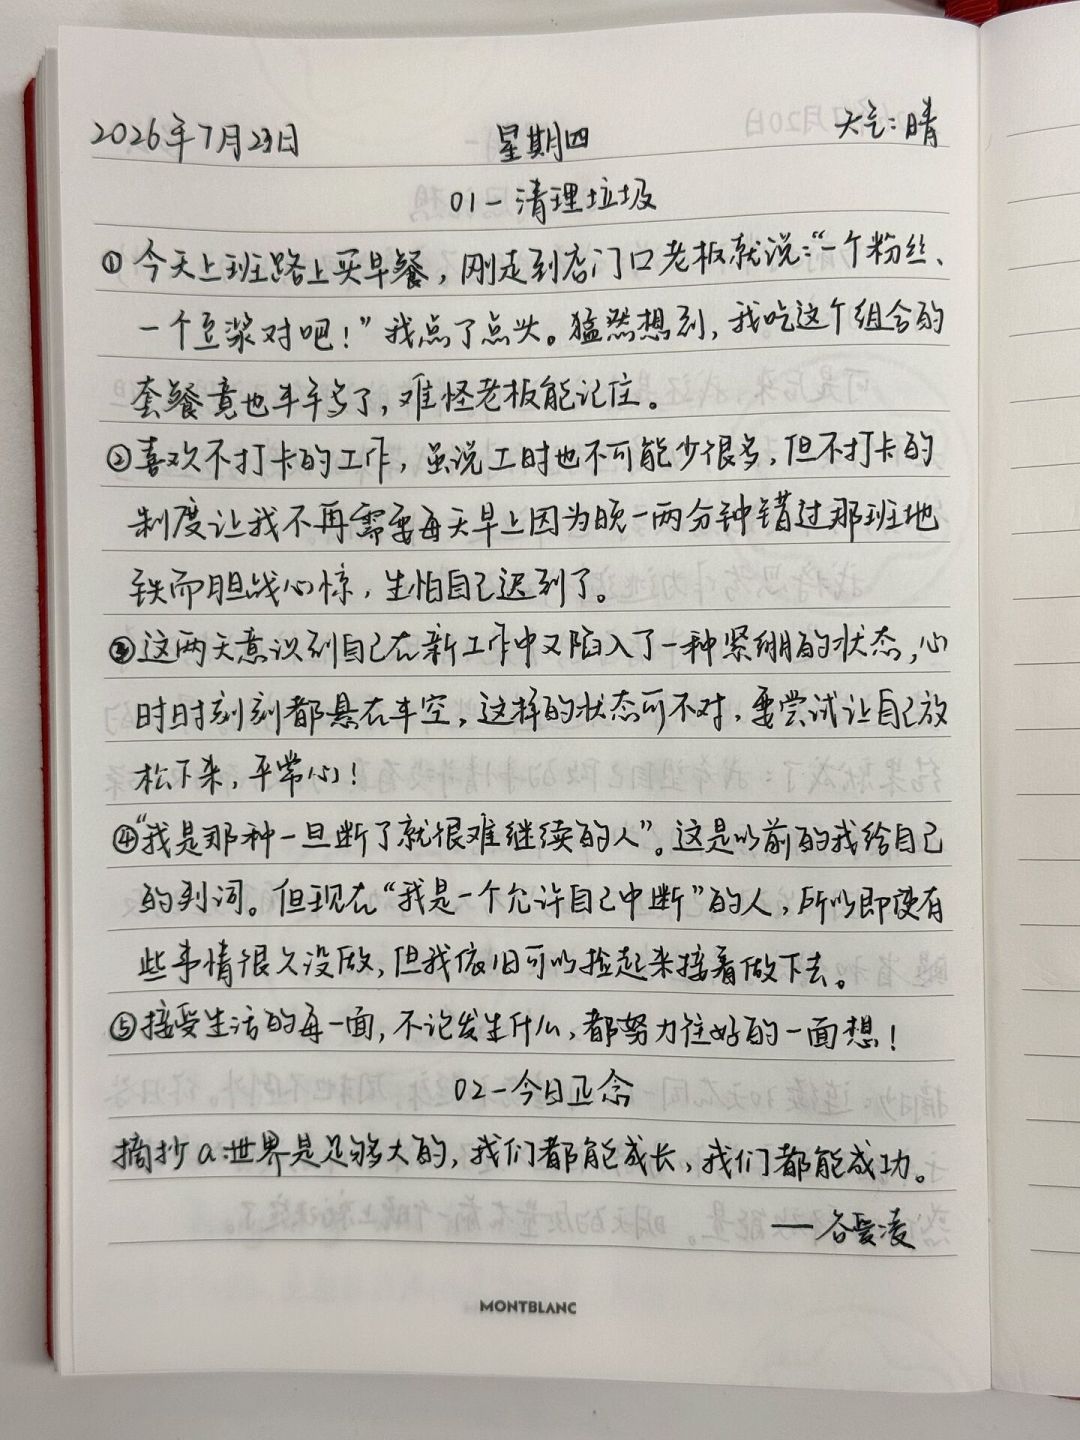 2026年7月23日 星期四 天气:晴
01一清理垃圾
①今天上班路上买早餐，刚走到店门口老板就说:“一个粉丝、
一个豆浆对吧！”我点了点头。猛然想到，我吃这个组合的
套餐竟也半年多了，难怪老板能记住。
②喜欢不打卡的工作，虽说工时也不可能少很多，但不打卡的
制度让我不再需要每天早上因为晚一两分钟错过那班地
铁而胆战心惊，生怕自己迟到了。
③这两天意识到自己在新工作中又陷入了一种紧绷的状态，心
时时刻刻都悬在半空，这样的状态可不对，要尝试让自己放
松下来，平常心！
④“我是那种一旦断了就很难继续的人”。这是以前的我给自己
的判词。但现在“我是一个允许自己中断”的人，所以即使有
些事情很久没做，但我依旧可以捡起来接着做下去。
⑤接受生活的每一面，不论发生什么，都努力往好的一面想！
02一今日正念
摘抄a:世界是足够大的，我们都能成长，我们都能成功。
——谷爱凌
MONTBLANC